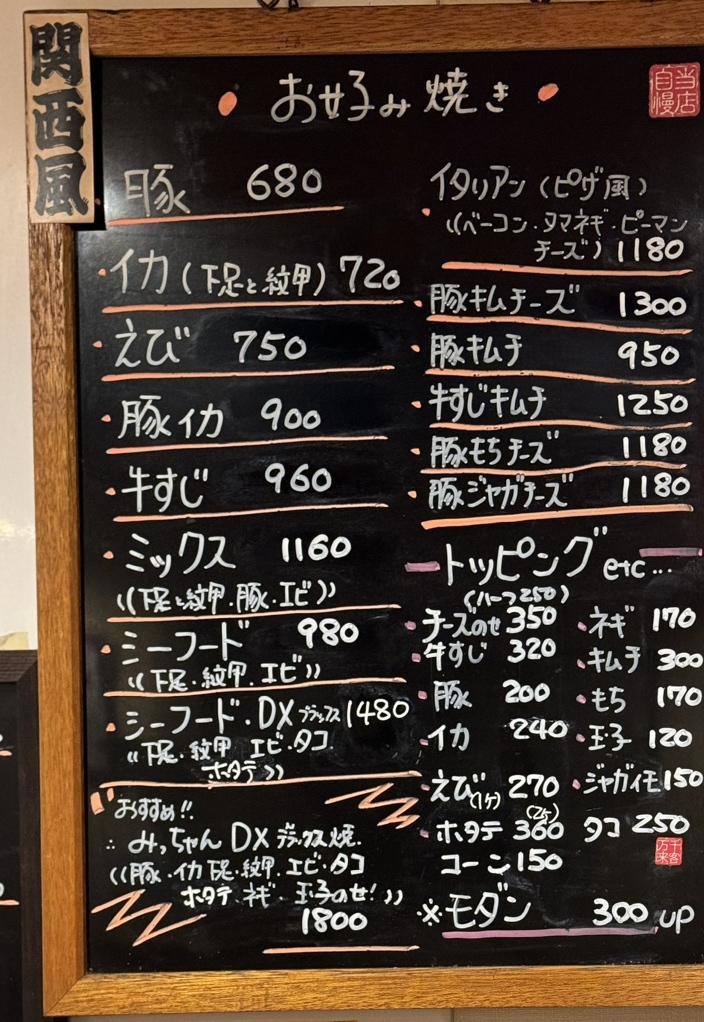 関西風
お好み焼き
当店
自慢
豚 680
イカ(下足と紋甲) 720
えび 750
豚イカ 900
牛すじ 960
ミックス 1160
((下足と紋甲・豚・エビ))
シーフード 980
((下足・紋甲・エビ))
シーフード・DXデラックス 1480
((下足・紋甲 エビ・タコ
ホタテ))
おすすめ!!
みっちゃんDXデラックス焼
((豚・イカ下足・紋甲・エビ・タコ
ホタテ ネギ・玉子のせ!))
1800
イタリアン(ピザ風)
((ベーコン・タマネギ・ピーマン
チーズ) 1180
豚キムチーズ 1300
豚キムチ 950
牛すじキムチ 1250
豚もちチーズ 1180
豚ジャガチーズ 1180
トッピング etc...
(ハーフ250)
チーズのせ 350
牛すじ 320
豚 200
イカ 240
えび(1ケ) 270
(2ケ)
ホタテ 360
コーン 150
ネギ 170
キムチ 300
もち 170
玉子 120
ジャガイモ 150
タコ 250
千客
万来
※モダン 300 up